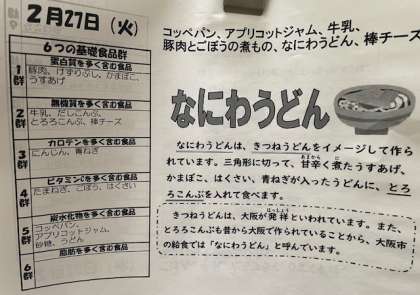 2月27日(火)
コッペパン、アプリコットジャム、牛乳、
豚肉とごぼうの煮もの、なにわうどん、棒チーズ
6つの基礎食品群
1群
蛋白質を多く含む食品
豚肉、けずりぶし、かまぼこ、
うすあげ
2群
無機質を多く含む食品
牛乳、だしこんぶ、
とろろこんぶ、棒チーズ
3群
カロテンを多く含む食品
にんじん、青ねぎ
4群
ビタミンCを多く含む食品
たまねぎ、ごぼう、はくさい
5群
炭水化物を多く含む食品
コッペパン、
アプリコットジャム、
砂糖、うどん
6群
脂肪を多く含む食品
なにわうどん
なにわうどんは、きつねうどんをイメージして作ら
れています。三角形に切って、甘辛く煮たうすあげ、
あまから
かまぼこ、はくさい、青ねぎが入ったうどんに、とろ
ろこんぶを入れて食べます。
きつねうどんは、大阪が発祥といわれています。また、
はっしょう
とろろこんぶも昔から大阪で作られていることから、大阪市
の給食では「なにわうどん」と呼んでいます。